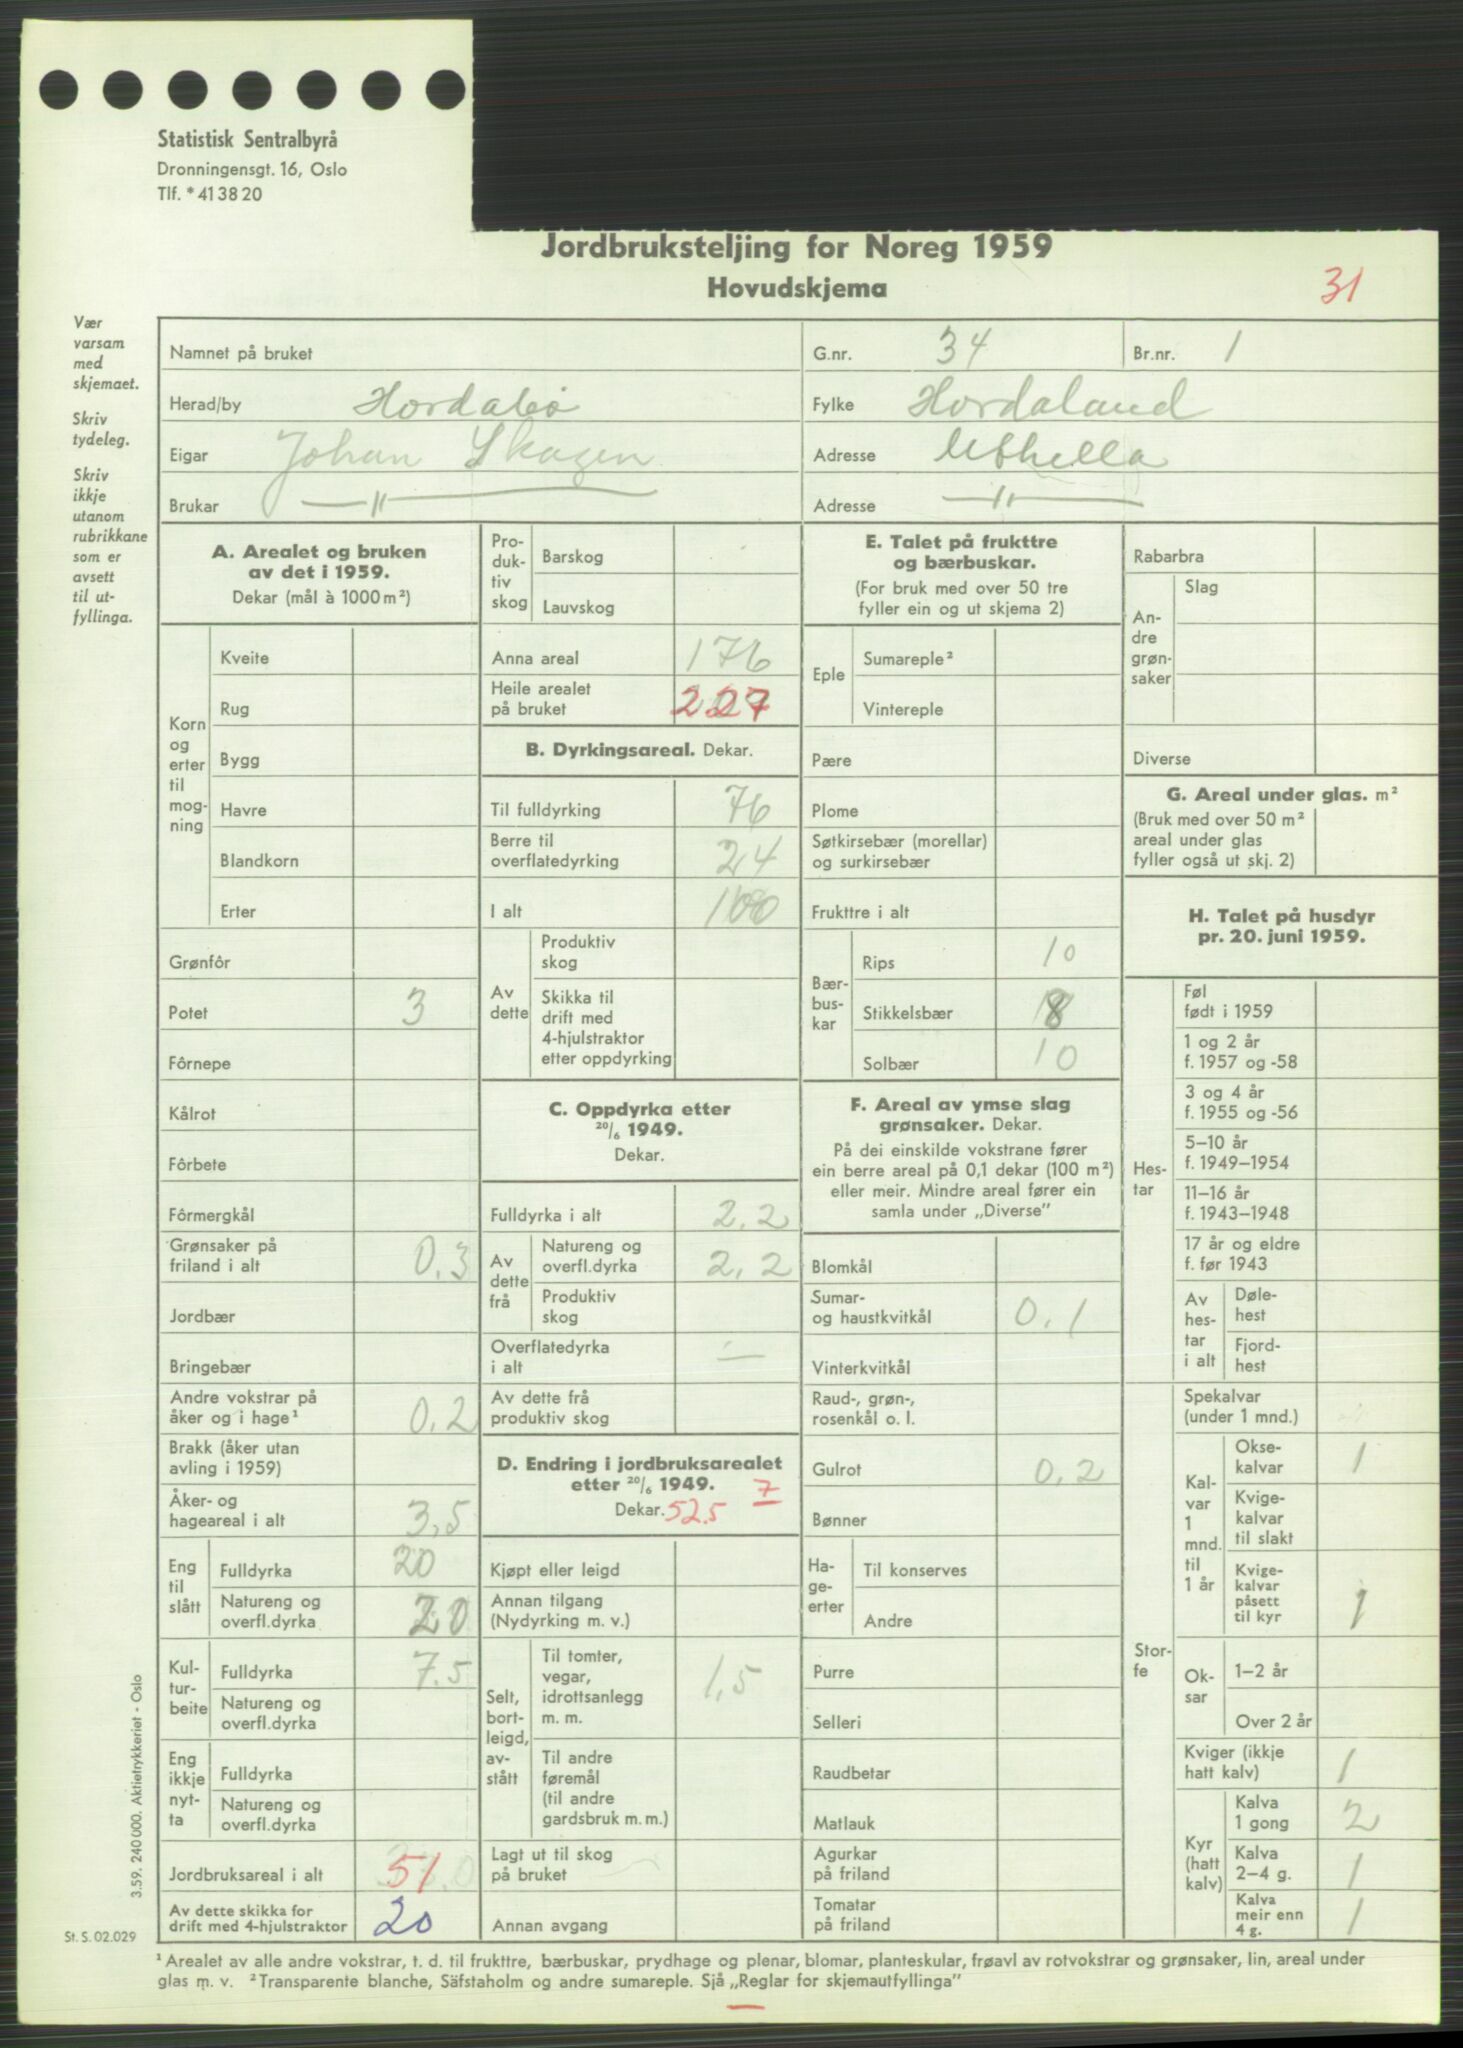 Statistisk Sentralbyrå
Dronningensgt. 16, Oslo
Tlf. * 41 38 20
Jordbruksteljing for Noreg 1959
Hovudskjema
31
Vær
varsam
med
skjemaet.
Skriv
tydeleg.
Skriv
ikkje
utanom
rubrikkane
som er
avsett
til ut-
fyllinga.
Namnet på bruket
G.nr. 34 Br.nr. 1
Herad/by Hordabø
Fylke Hordaland
Eigar Johan Skagen
Adresse Uthella
Brukar —„—
Adresse —„—
A. Arealet og bruken
av det i 1959.
Dekar (mål à 1000 m²)
Korn
og
erter
til
mog-
ning
Kveite
Rug
Bygg
Havre
Blandkorn
Erter
Grønfôr
Potet 3
Fôrnepe
Kålrot
Fôrbete
Fôrmergkål
Grønsaker på
friland i alt 0,3
Jordbær
Bringebær
Andre vokstrar på
åker og i hage¹ 0,2
Brakk (åker utan
avling i 1959)
Åker- og
hageareal i alt 3,5
Eng
til
slått
Fulldyrka 20
Natureng og
overfl.dyrka 20
Kul-
tur-
beite
Fulldyrka 7.5
Natureng og
overfl.dyrka
Eng
ikkje
nyt-
ta
Fulldyrka
Natureng og
overfl.dyrka
Jordbruksareal i alt 51
Av dette skikka for
drift med 4-hjulstraktor 20
Pro-
duk-
tiv
skog
Barskog
Lauvskog
Anna areal 176
Heile arealet
på bruket 227
B. Dyrkingsareal. Dekar.
Til fulldyrking 76
Berre til
overflatedyrking 24
I alt 100
Av
dette
Produktiv
skog
Skikka til
drift med
4-hjulstraktor
etter oppdyrking
C. Oppdyrka etter
20/6 1949.
Dekar.
Fulldyrka i alt 2,2
Av
dette
frå
Natureng og
overfl.dyrka 2,2
Produktiv
skog
Overflatedyrka
i alt —
Av dette frå
produktiv skog
D. Endring i jordbruksarealet
etter 20/6 1949. 7
Dekar. 52.5
Kjøpt eller leigd
Annan tilgang
(Nydyrking m. v.)
Selt,
bort-
leigd,
av-
stått
Til tomter,
vegar,
idrottsanlegg
m. m. 1,5
Til andre
føremål
(til andre
gardsbruk m. m.)
Lagt ut til skog
på bruket
Annan avgang
E. Talet på frukttre
og bærbuskar.
(For bruk med over 50 tre
fyller ein og ut skjema 2)
Eple
Sumareple²
Vintereple
Pære
Plome
Søtkirsebær (morellar)
og surkirsebær
Frukttre i alt
Bær-
bus-
kar
Rips 10
Stikkelsbær 8
Solbær 10
F. Areal av ymse slag
grønsaker. Dekar.
På dei einskilde vokstrane fører
ein berre areal på 0,1 dekar (100 m²)
eller meir. Mindre areal fører ein
samla under „Diverse”
Blomkål
Sumar-
og haustkvitkål 0,1
Vinterkvitkål
Raud-, grøn-,
rosenkål o. l.
Gulrot 0,2
Bønner
Ha-
ge-
erter
Til konserves
Andre
Purre
Selleri
Raudbetar
Matlauk
Agurkar
på friland
Tomatar
på friland
Rabarbra
An-
dre
grøn-
saker
Slag
Diverse
G. Areal under glas. m²
(Bruk med over 50 m²
areal under glas
fyller også ut skj. 2)
H. Talet på husdyr
pr. 20. juni 1959.
Hes-
tar
Føl
født i 1959
1 og 2 år
f. 1957 og -58
3 og 4 år
f. 1955 og -56
5–10 år
f. 1949–1954
11–16 år
f. 1943–1948
17 år og eldre
f. før 1943
Av
hes-
tar
i alt
Døle-
hest
Fjord-
hest
Stor-
fe
Spekalvar
(under 1 mnd.)
Kal-
var
1
mnd.
til
1 år
Okse-
kalvar 1
Kvige-
kalvar
til slakt
Kvige-
kalvar
påsett
til kyr 1
Ok-
sar
1–2 år
Over 2 år
Kviger (ikkje
hatt kalv) 1
Kyr
(hatt
kalv)
Kalva
1 gong 2
Kalva
2–4 g. 1
Kalva
meir enn
4 g. 1
3.59. 240 000. Aktietrykkeriet - Oslo
St. S. 02.029
¹ Arealet av alle andre vokstrar, t. d. til frukttre, bærbuskar, prydhage og plenar, blomar, planteskular, frøavl av rotvokstrar og grønsaker, lin, areal under
glas m. v. ² Transparente blanche, Säfstaholm og andre sumareple. Sjå „Reglar for skjemautfyllinga”